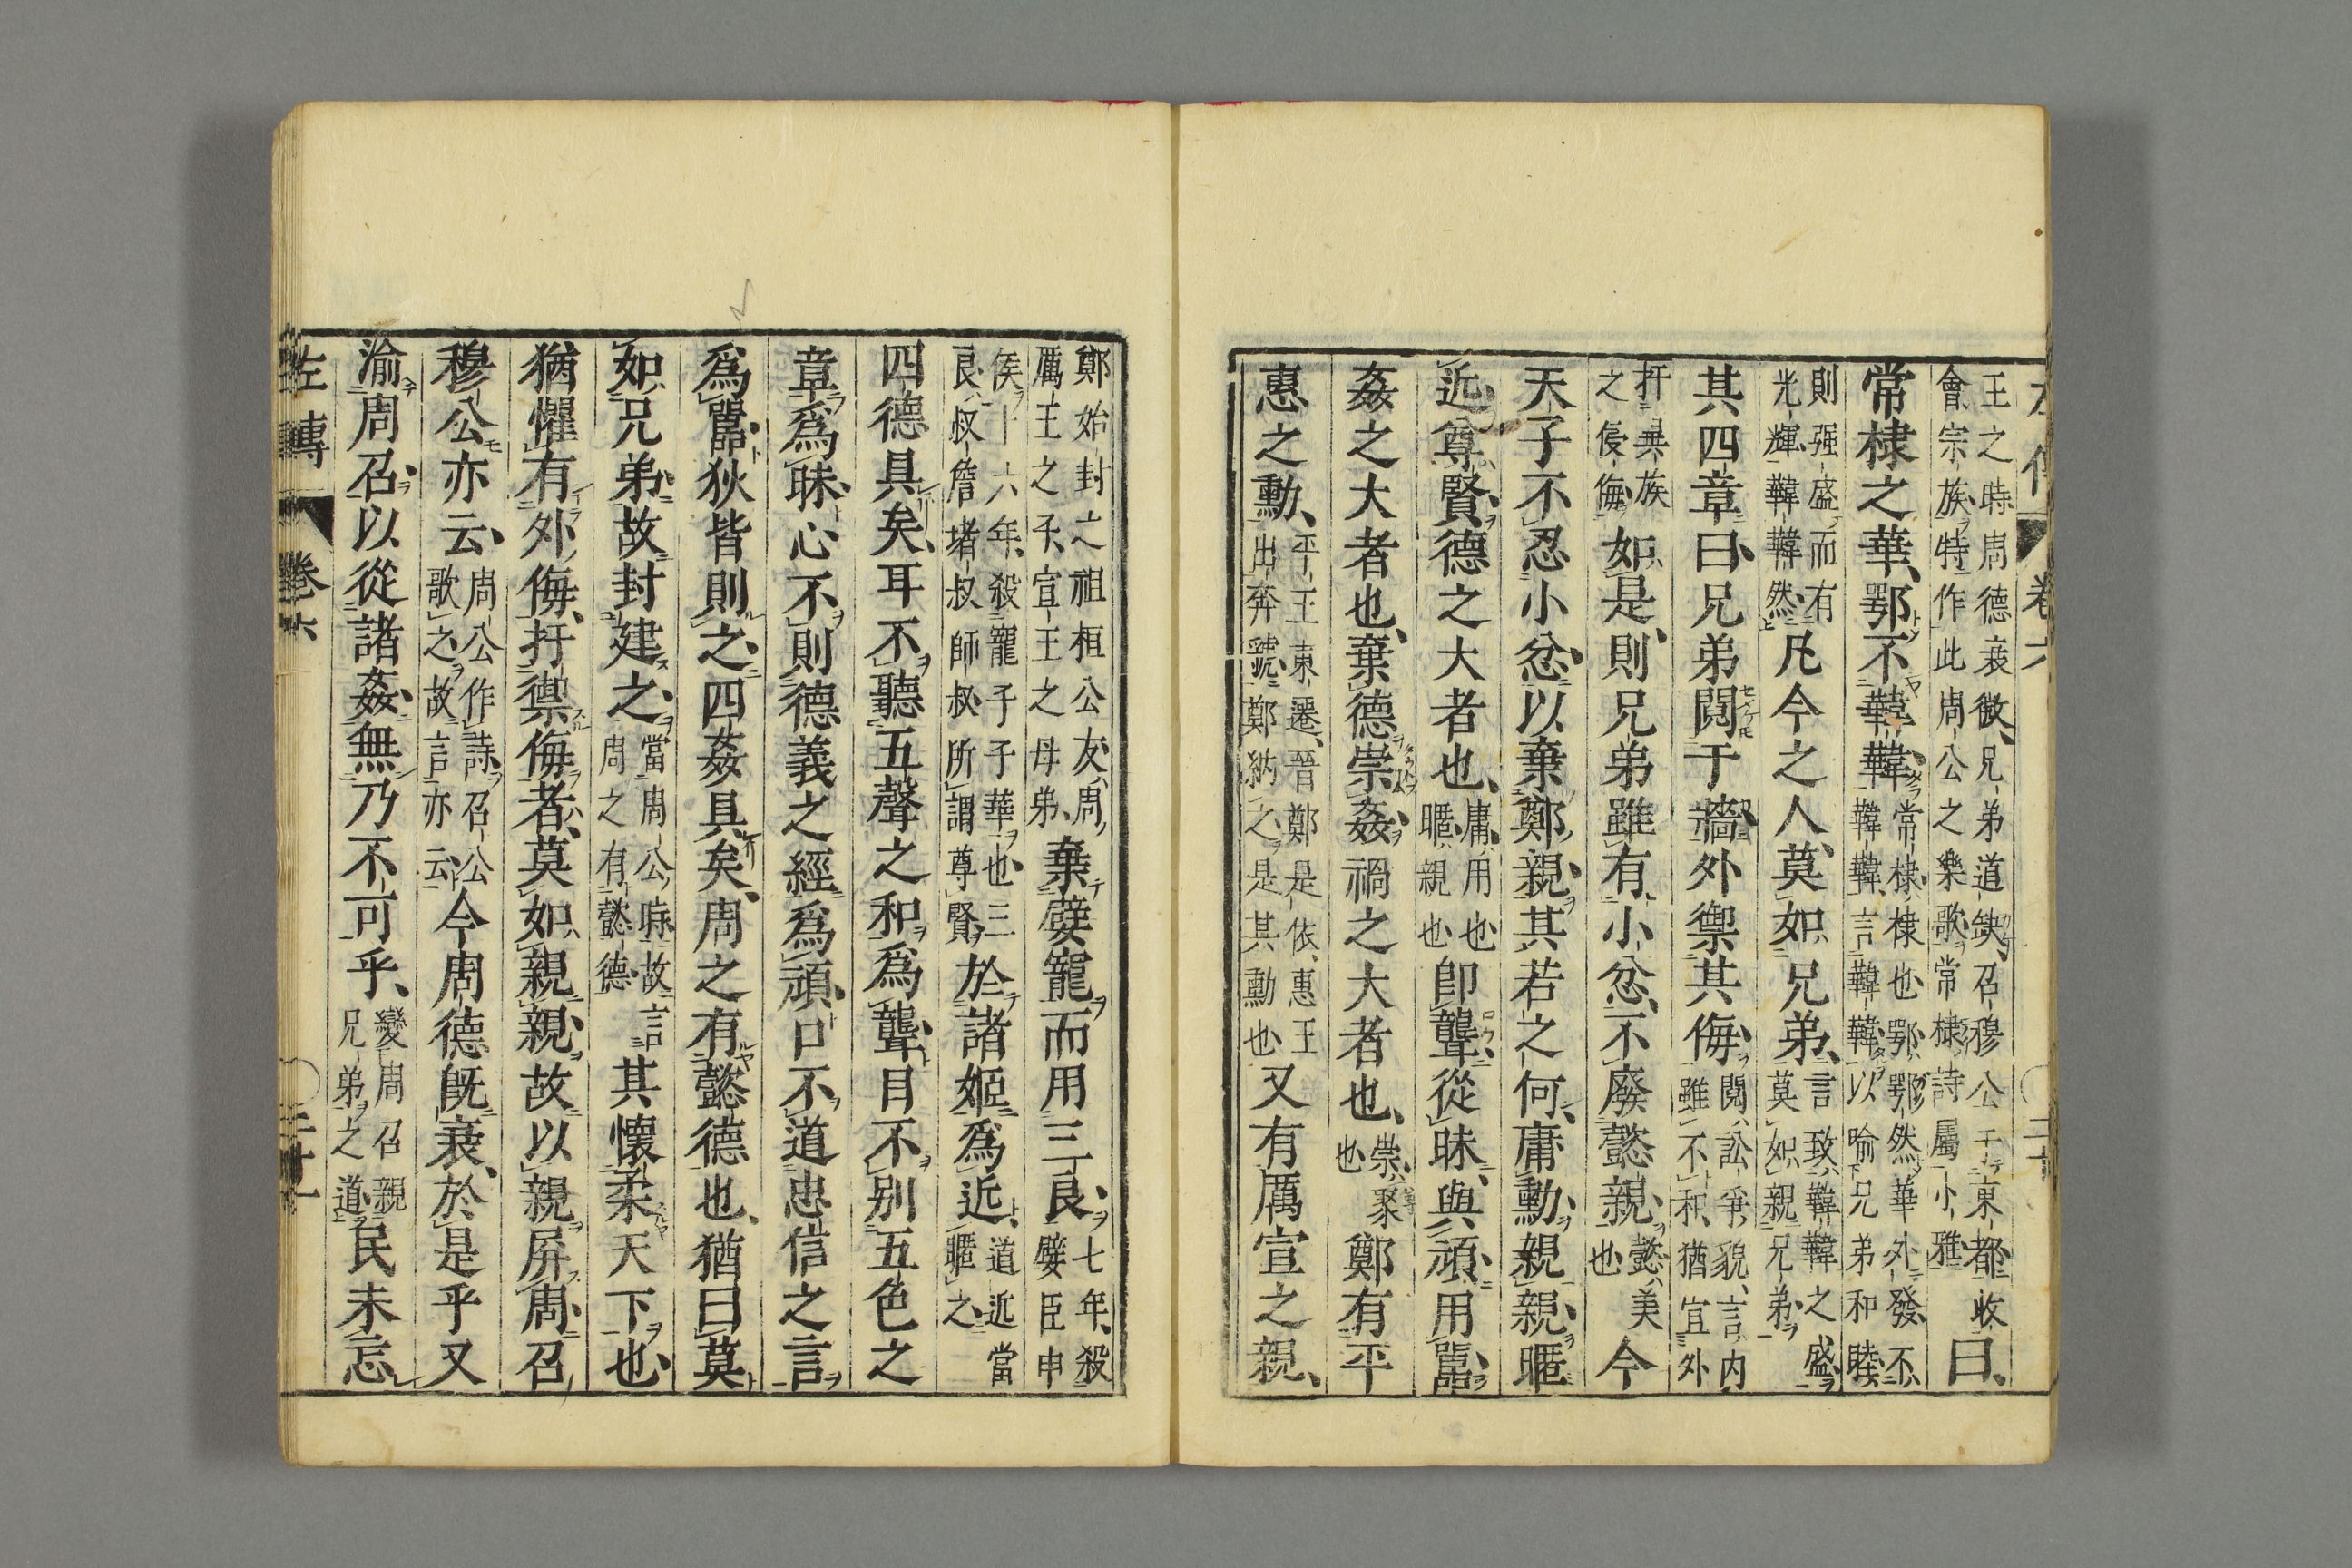 王之時周德衰微兄弟道缺召穆公于東都收
會宗族特作此周公之樂歌常棣詩屬小雅
曰
常棣之華鄂不韡韡
常棣棣也鄂鄂然華外發不
韡韡言韡韡以喻兄弟和睦
則强盛而有
光輝韡韡然
凡今之人莫如兄弟
言致韡韡之盛
莫如親兄弟
其四章曰兄弟鬩于牆外禦其侮
鬩訟爭貌言内
雖不和猶宜外
扞異族
之侵侮
如是則兄弟雖有小忿不廢懿親
懿美
也
今
天子不忍小忿以棄鄭親其若之何庸勳親親暱
近尊賢德之大者也
庸用也
暱親也
卽聾從昧與頑用嚚
姦之大者也棄德崇姦禍之大者也
崇聚
也
鄭有平
惠之勳
平王東遷晉鄭是依惠王
出奔虢鄭納之是其勳也
又有厲宣之親
鄭始封之祖桓公友周
厲王之子宣王之母弟
棄嬖寵而用三良
七年殺
嬖臣申
侯十六年殺寵子子華也三
良叔詹堵叔師叔所謂尊賢
於諸姬爲近
道近當
暱之
四德具矣耳不聽五聲之和爲聾目不别五色之
章爲昧心不則德義之經爲頑口不道忠信之言
爲嚚狄皆則之四姦具矣周之有懿德也猶曰莫
如兄弟故封建之
當周公時故言
周之有懿德
其懷柔天下也
猶懼有外侮扞禦侮者莫如親親故以親屏周召
穆公亦云
周公作詩召公
歌之故言亦云
今周德旣衰於是乎又
渝周召以從諸姦無乃不可乎
變周召親
兄弟之道
民未忘
左傳 卷六